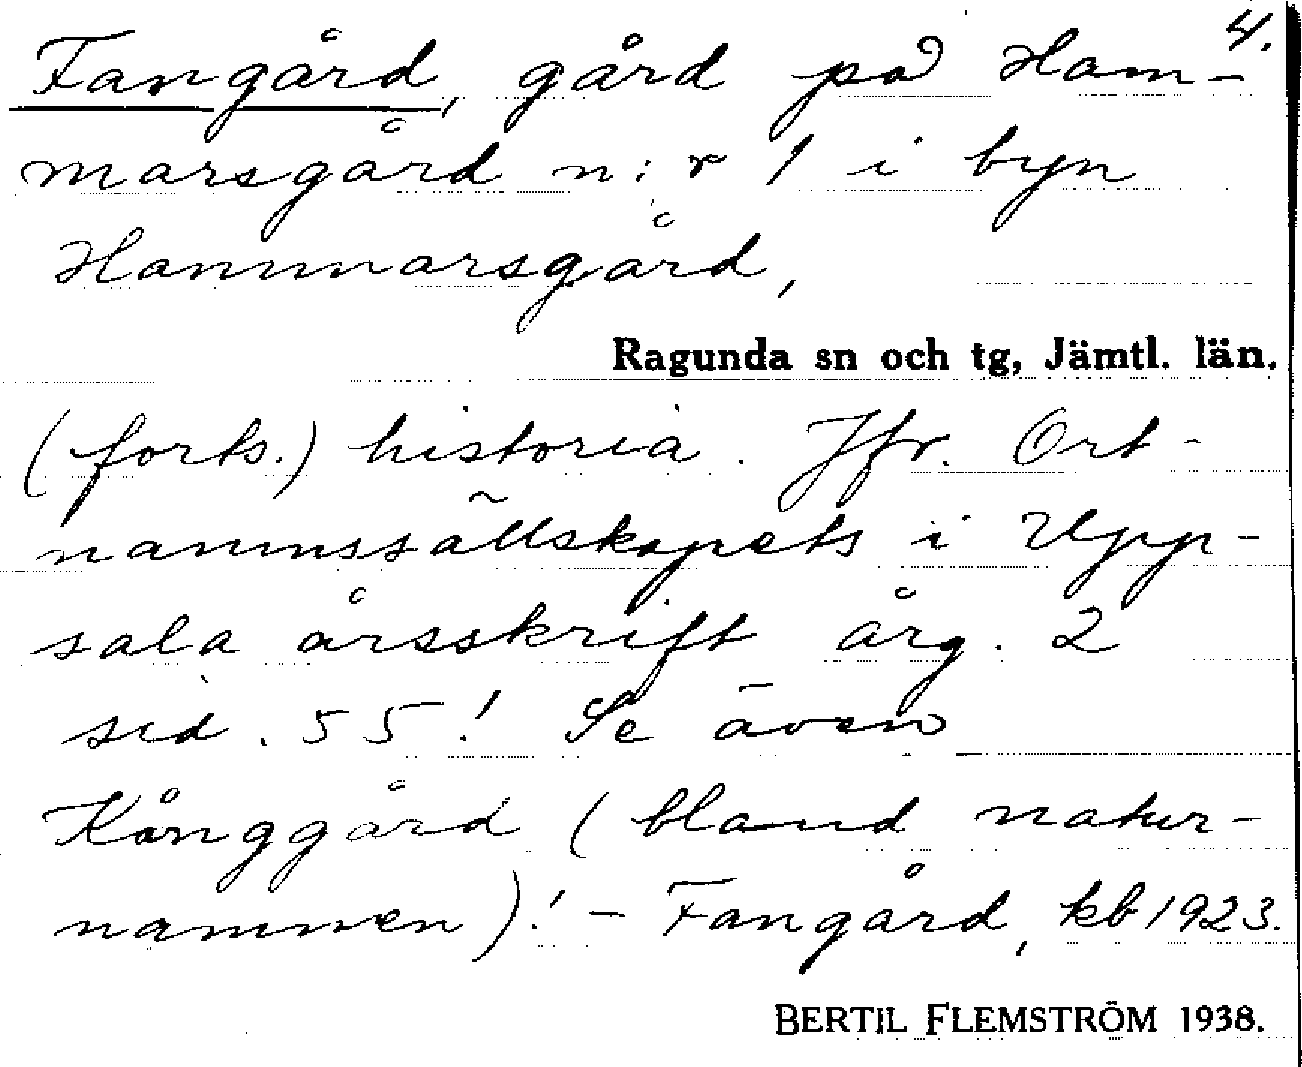 4.
Fangård, gård på Ham-
marsgård n:r 1 i byn
Hammarsgård,
Ragunda sn och tg, Jämtl. län.
(forts.) historia. Jfr. Ort-
namnssällskapets i Upp-
sala årsskrift årg. 2
sid. 55! Se även
Kånggård (bland natur-
namnen)! - Fangård, kb 1923.
BERTIL FLEMSTRÖM 1938.